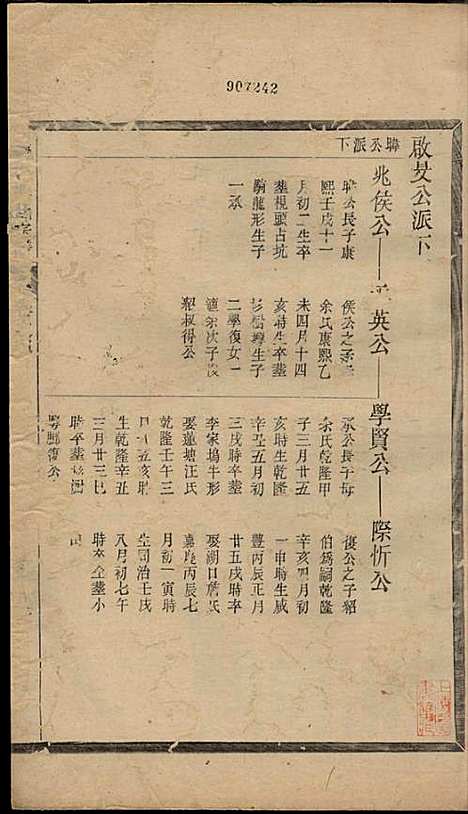 907242
啟旻公派下
驊公派下
兆侯公——承英公——學賢公——際忻公
公長子康
熙壬戌十一
月初二生卒
葬視頭占坑
騎龍形生子
一承
侯公之子
余氏康熙乙
未四月十四
亥時生卒葬
杉樹塆生子
二學復女一
次子
紹叔得公
承公長子母
余氏乾隆甲
子三月廿五
亥時生乾隆
辛丑五月初
三戌時卒葬
李家塢牛形
娶蓮塘汪氏
乾隆壬午三
月廿五亥時
生乾隆辛丑
三月廿三巳
時卒葬
復公之子紹
伯為嗣乾隆
辛亥四月初
一申時生咸
豐丙辰正月
廿五戌時卒
娶湖口詹氏
嘉慶丙辰七
月初一寅時
生同治壬戌
八月初七午
時卒仝葬小